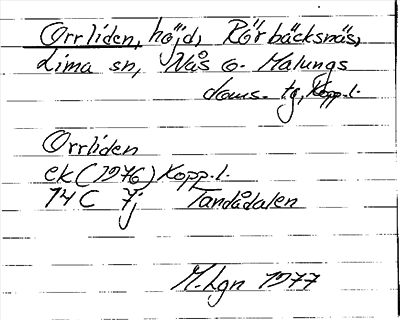 Orrliden, höjd, Rörbäcksnäs,
Lima sn, Nås o. Malungs
doms. tg, Kopp.l.
Orrliden
ek (1976) Kopp.l.
14C 7j Tandådalen
M.Lgn 1977